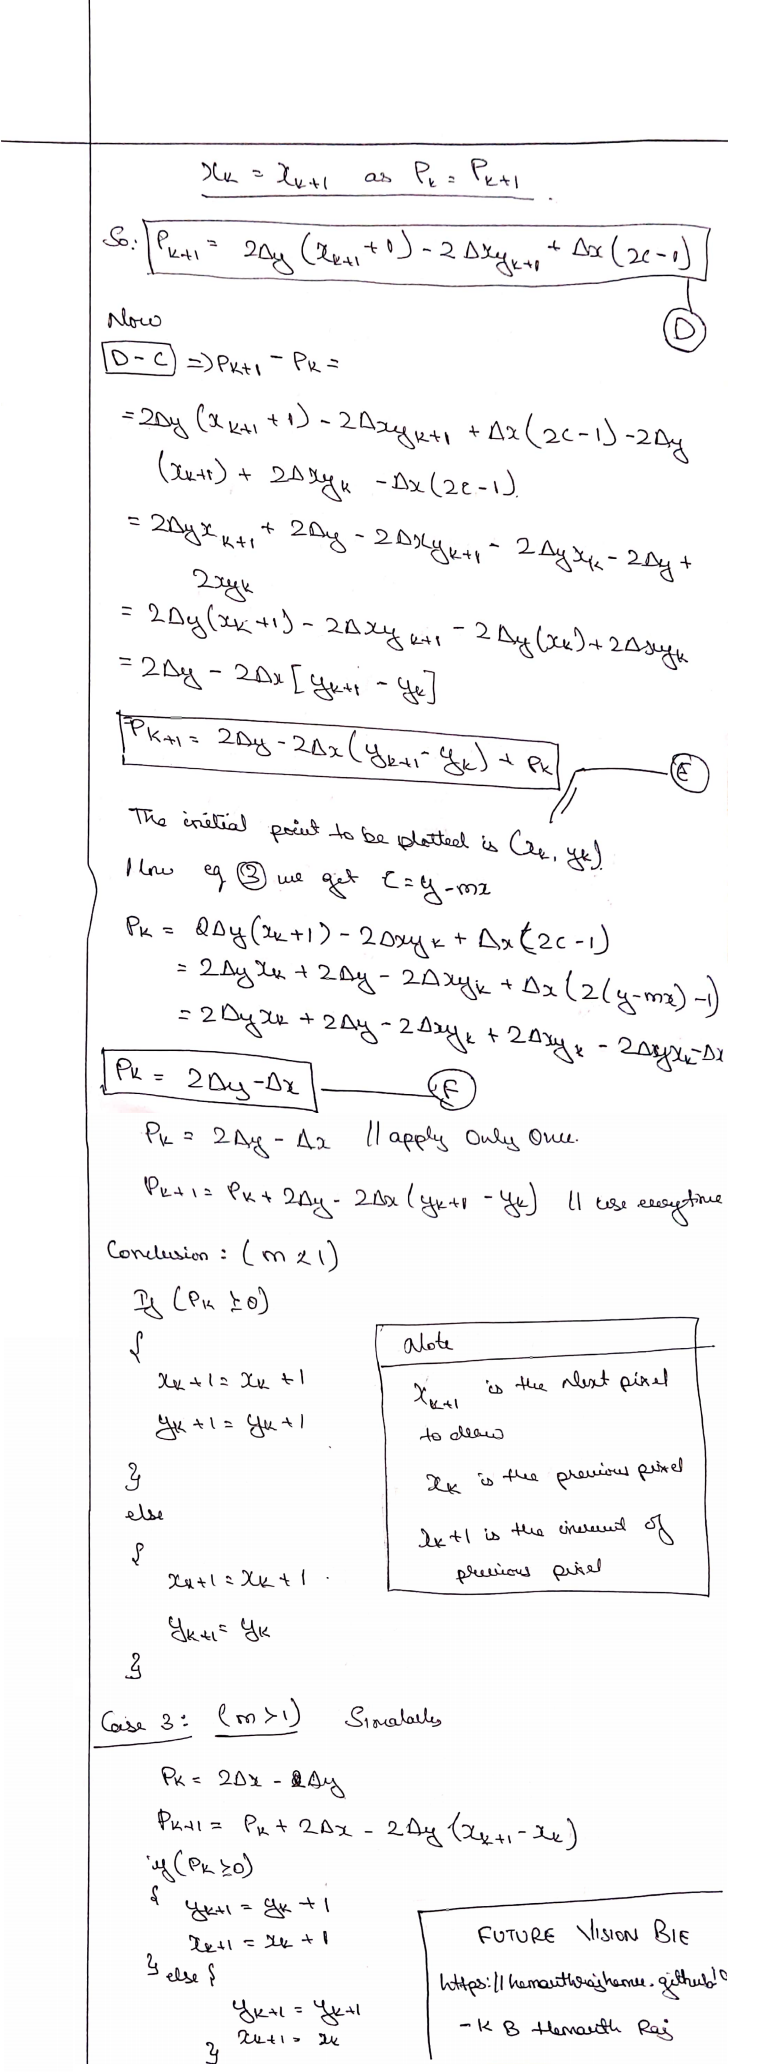 x_k = x_{k+1} as P_k = P_{k+1}.
So: P_{k+1} = 2Δy (x_{k+1} + 1) - 2Δxy_{k+1} + Δx (2c-1)
D
Now
D-C => P_{k+1} - P_k =
= 2Δy (x_{k+1} + 1) - 2Δxy_{k+1} + Δx (2c-1) - 2Δy
(x_{k+1}) + 2Δxy_k - Δx (2c-1).
= 2Δyx_{k+1} + 2Δy - 2Δxy_{k+1} - 2Δyx_k - 2Δy +
2xy_k
= 2Δy (x_k+1) - 2Δxy_{k+1} - 2Δy (x_k) + 2Δxy_k
= 2Δy - 2Δx [y_{k+1} - y_k]
P_{k+1} = 2Δy - 2Δx (y_{k+1} - y_k) + P_k
E
The initial point to be plotted is (x_k, y_k).
eq ③ we get C = y-mx
P_k = 2Δy (x_k+1) - 2Δxy_k + Δx (2c-1)
= 2Δyx_k + 2Δy - 2Δxy_k + Δx (2(y-mx)-1)
= 2Δyx_k + 2Δy - 2Δxy_k + 2Δxy_k - 2Δyx_k - Δx
P_k = 2Δy-Δx
F
P_k = 2Δy - Δx // apply Only Once.
P_{k+1} = P_k + 2Δy - 2Δx (y_{k+1} - y_k) // use everytime
Conclusion : (m < 1)
If (P_k ≥ 0)
{
x_k+1 = x_k +1
y_k+1 = y_k+1
}
else
{
x_k+1 = x_k + 1.
y_{k+1} = y_k
}
Note
x_{k+1} is the Next pixel
to draw
x_k is the previous pixel
x_k+1 is the increment of
previous pixel
Case 3: (m > 1) Similarly
P_k = 2Δx - Δy
P_{k+1} = P_k + 2Δx - 2Δy (x_{k+1} - x_k)
if (P_k ≥ 0)
{ y_{k+1} = y_k + 1
x_{k+1} = x_k + 1
} else {
y_{k+1} = y_k+1
x_{k+1} = x_k
}
FUTURE VISION BIE
https://hemanthrajhemu.github.io
- K B Hemanth Raj